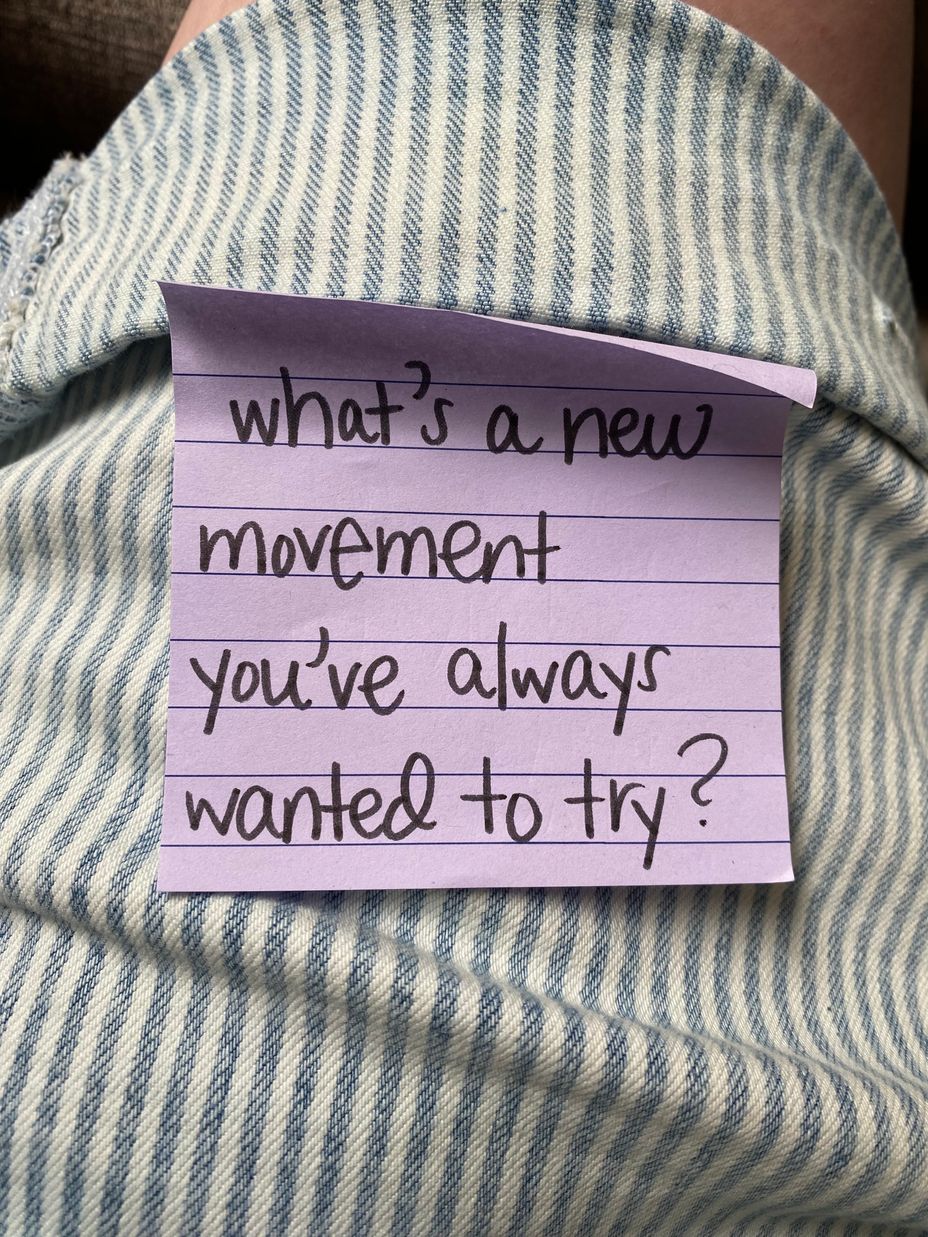 what's a new
movement
you've always
wanted to try?